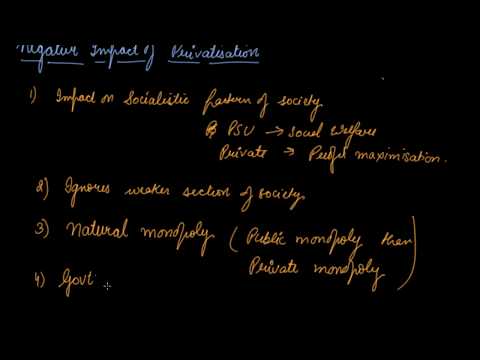 Negative Impact of Privatisation
1) Impact on Socialistic pattern of society
PSU → Social Welfare
Private → Profit maximisation.
2) Ignores weaker section of society.
3) Natural monopoly ( Public monopoly then
Private monopoly )
4) Govt